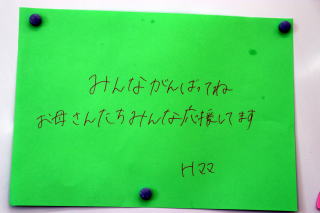 みんながんばってね
お母さんたちみんな応援してます
Hママ